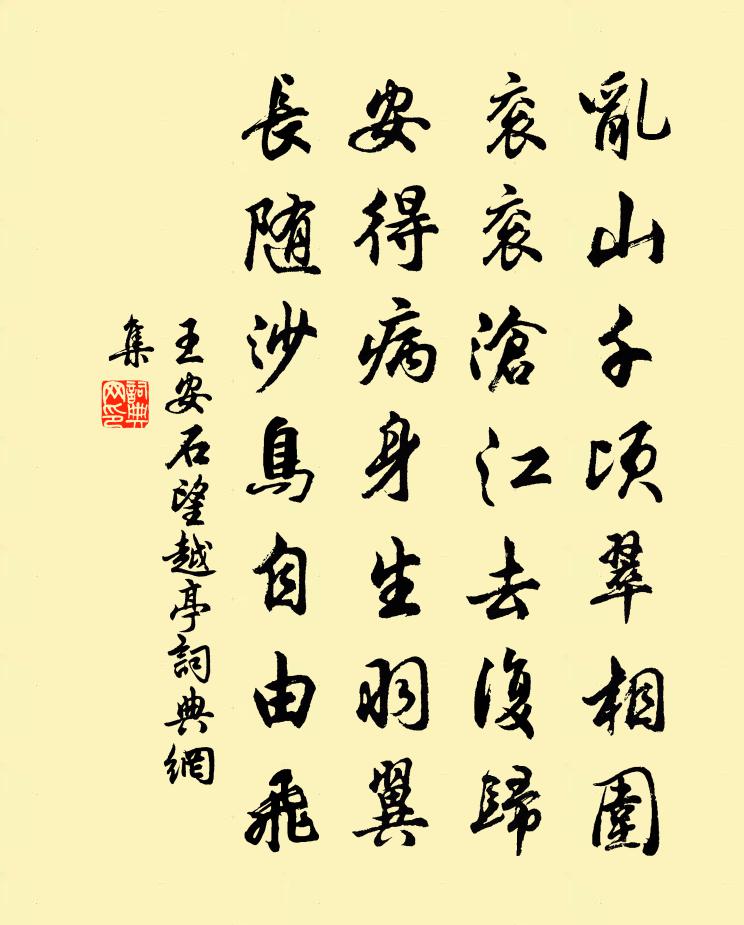 亂山千頃翠相圍
衮衮滄江去復歸
安得病身生羽翼
長随沙鳥自由飛
王安石望越亭詞典網
集
詞典網印